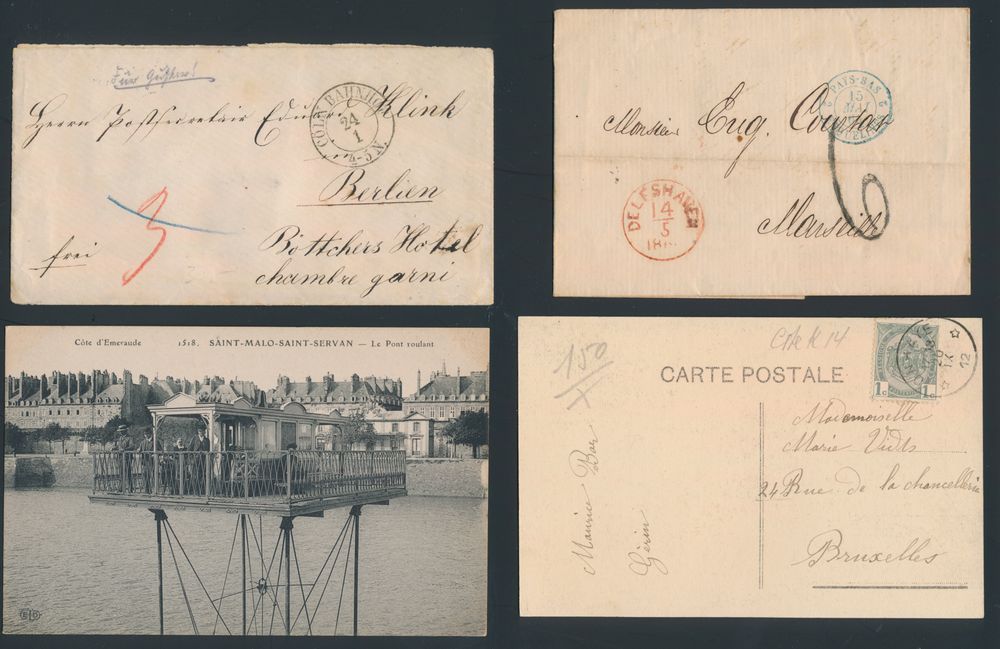 Für
Herrn Postsecretair Klink
CÖLN BAHNHOF
24
1
4-5 N.
Berlien
3
frei
Böttchers Hotel
chambre garni
PAYS-BAS
15
MAI
2 2
Monsieur Eug.
6
DELFSHAVEN
14
5
Marseille
Côte d'Emeraude 1518. SAINT-MALO-SAINT-SERVAN — Le Pont roulant
ELD
150
X
CARTE POSTALE
1c 1c
12
Mademoiselle
Marie
24 Rue de la chancellerie
Bruxelles
Maurice